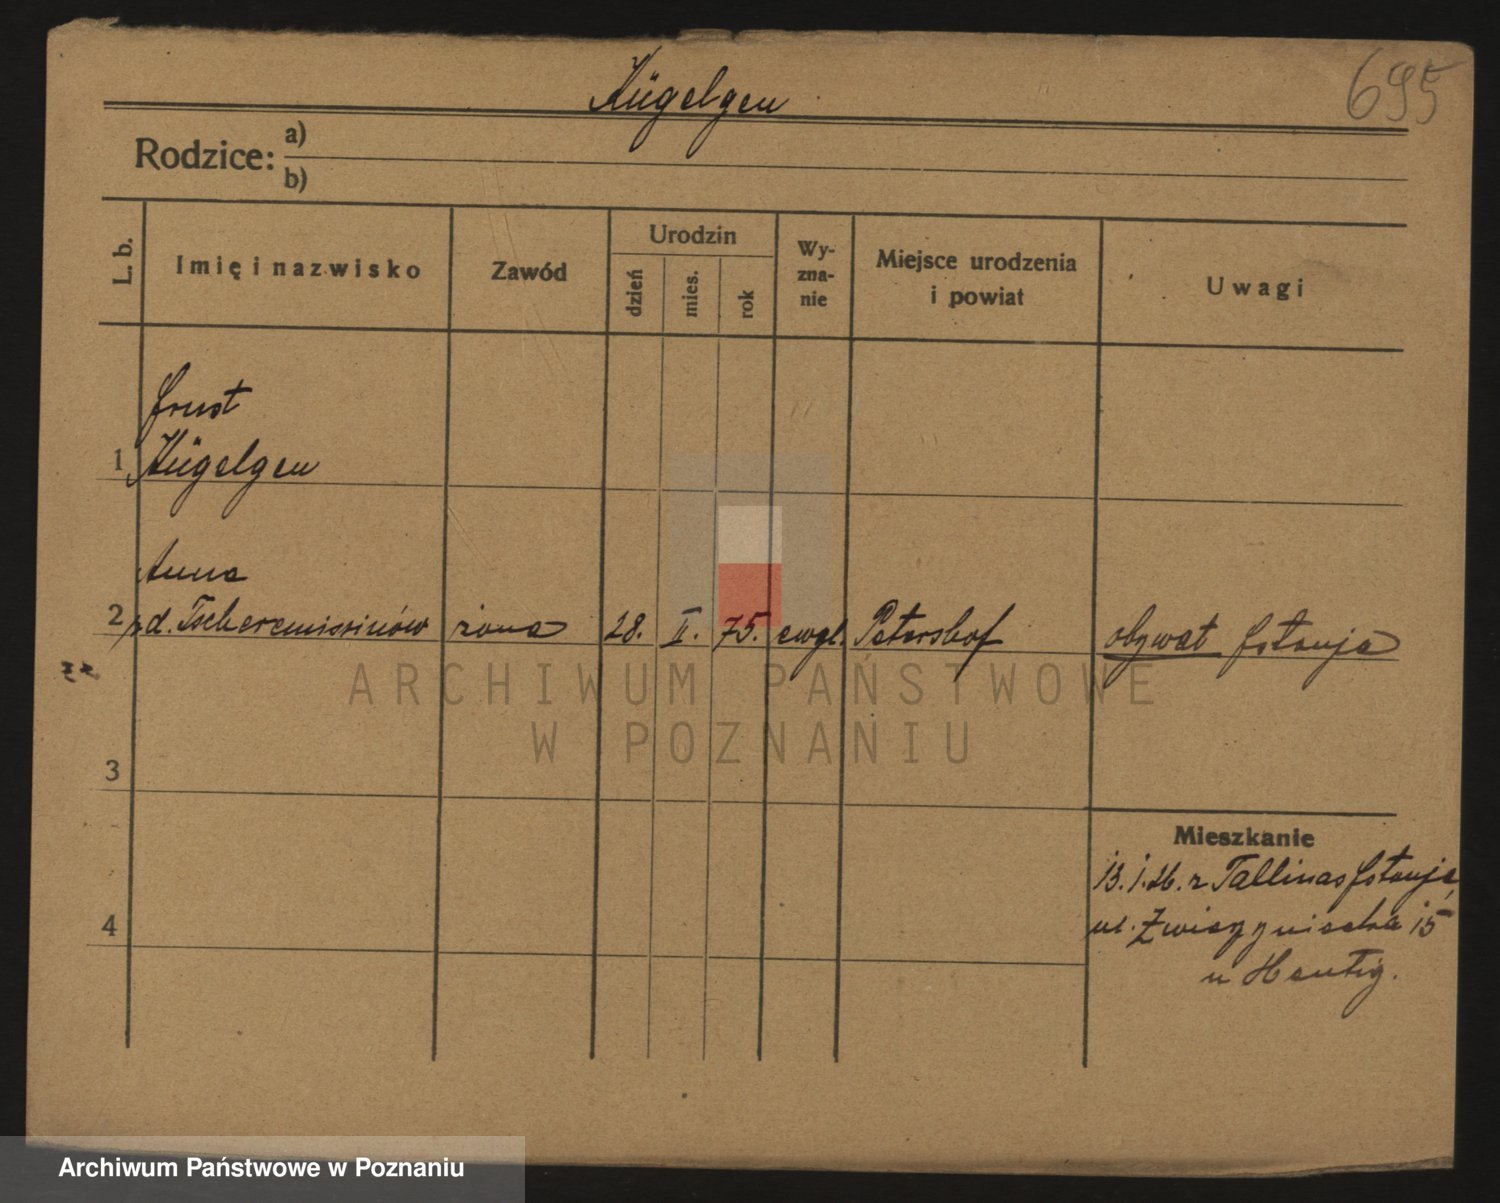 Kügelgen
695
Rodzice: a)
b)
L. b.
Imię i nazwisko
Zawód
Urodzin
dzień
mies.
rok
Wy-
zna-
nie
Miejsce urodzenia
i powiat
Uwagi
Ernst
1 Kügelgen
Anna
2 z d. Tscheremissinów żona 28. II. 75. ewgl. Petershof obywat Estonja
3
Mieszkanie
13.1.26. z Tallinas Estonja,
ul. Zwierzyniecka 15
4
u Hentig.
ARCHIWUM PAŃSTWOWE
W POZNANIU
Archiwum Państwowe w Poznaniu